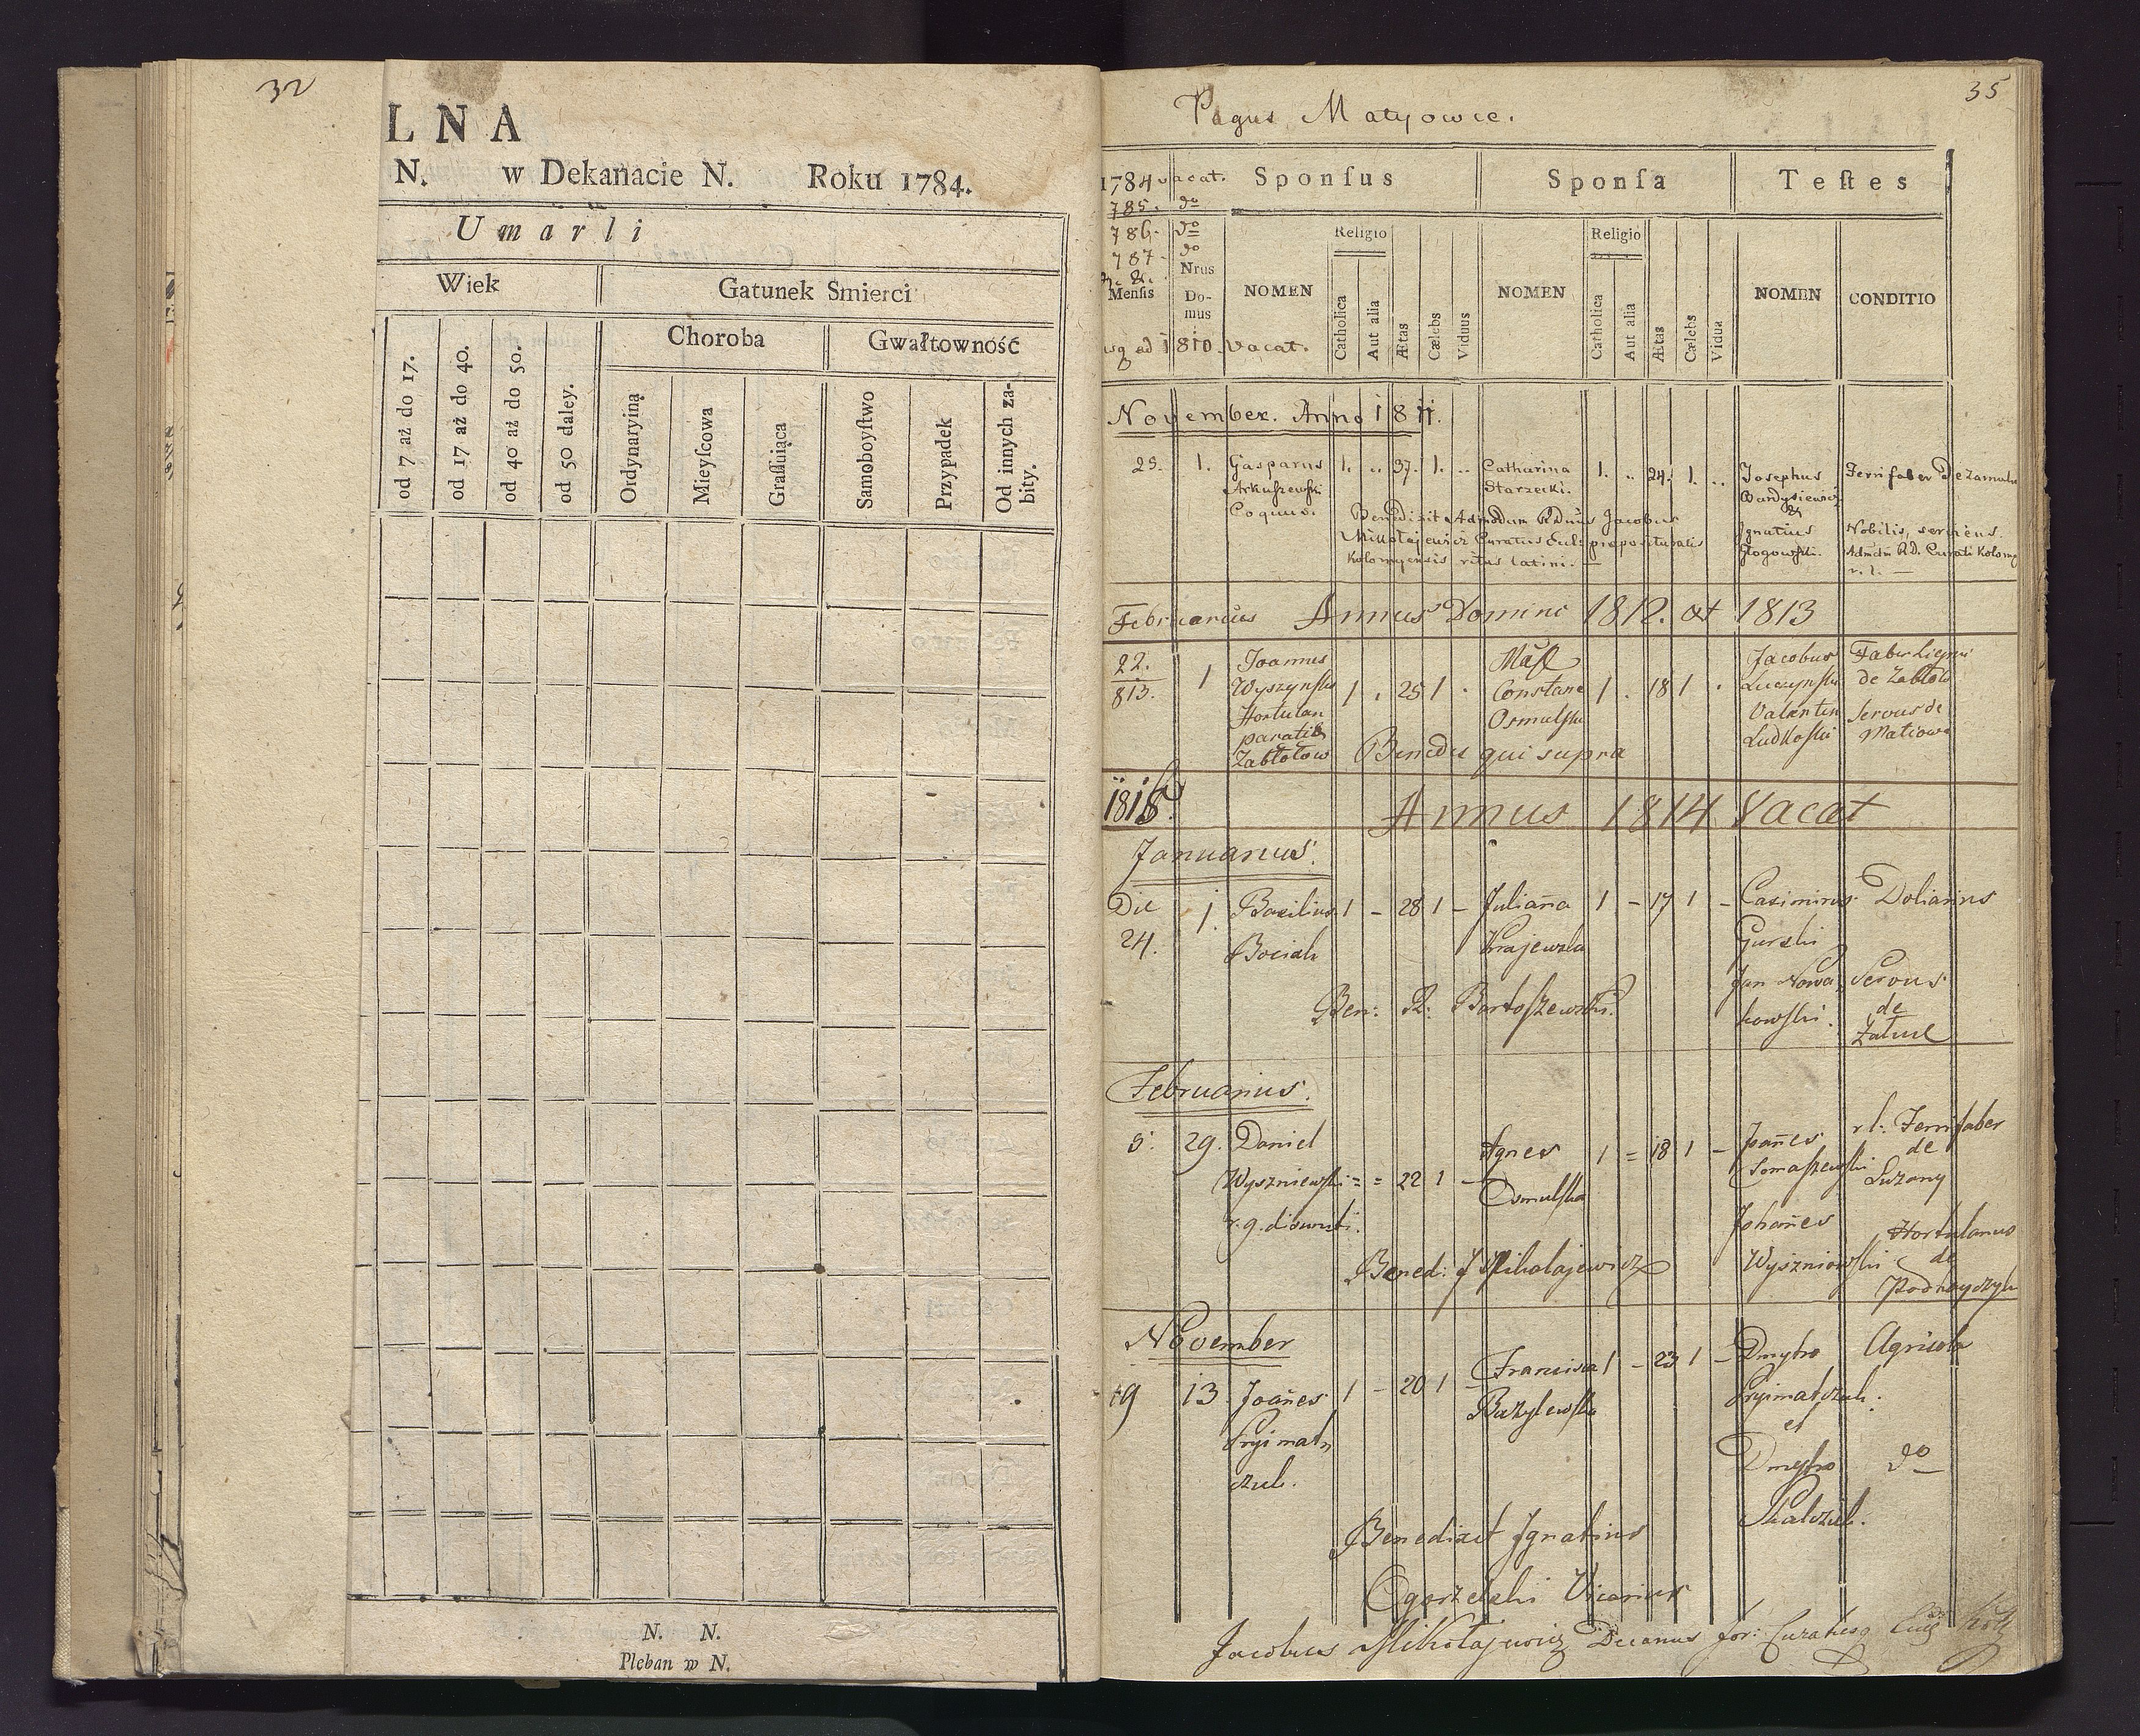 32
LNA
N. w Dekanacie N. Roku 1784.
Umarli
Wiek
Gatunek Smierci
Choroba
Gwałtowność
od 7 aż do 17.
od 17 aż do 40.
od 40 aż do 50.
od 50 daley.
Ordynaryiną
Mieyſcowa
Graſſuiąca
Samoboyſtwo
Przypadek
Od innych zabity.
N. N.
Pleban w N.
35
Pagus Matyowce.
1784 vacat.
785. do
786. do
787 do
Sponſus
Sponſa
Teſtes
Menſis
Nrus Domus
NOMEN
Religio
Catholica
Aut alia
Ætas
Cælebs
Viduus
NOMEN
Religio
Catholica
Aut alia
Ætas
Cælebs
Vidua
NOMEN
CONDITIO
usq ad 1810. vacat.
November. Anno 1811.
25. 1. Gasparus 1. „ 37. 1. „ Catharina 1. „ 24. 1. „ Josephus Ferrifaber de Zamulin
Arkuszewski Starzecki.
Coquus.
Benedixit Admodum RDnus Jacobus
Mikołajewicz Curatus Eccl: præposituralis
Kolomyensis ritus latini. —
&
Ignatius Nobilis, serviens
Głogowski. Admdm R.D. Curati Kolomy
r. l. —
Februarius Annus Domini 1812. et 1813
22. 1 Joannes
813. Wyszynski 1 . 25 1 . Constanc 1 . 18 1 . Jacobus Faber Lignri
Hortulan Osmulska Luczynski de Zabłotów
Zabłotow Valentin Servus de
Ludkoski Matiowc
Bened qui supra
1815. Annus 1814 Vacat
Januarius.
Die 1. Basilius 1 – 28 1 – Julianna 1 – 17 1 – Casimirus Doliarius
24. Bociak Krajewska Gurski
Jan Nowakowski. Servus
de
Ben: R: Bartoszewski.
Februarius.
5. 29. Daniel Agnes 1 = 18 1 – Joañes r l: Ferrifaber
Wyszniewski = = 22 1 – Osmulska Tomaszewski de
Luzany
Johañes Hortulanus
Wyszniowski de
Bened: J Mikolajewicz
November
19 13. Joañes 1 – 20 1 – Francisca 1 – 23 1 – Dmytro Agricola
Pryimatczuk. Bazylewska Pryimatczuk.
et
Dmytro do
Benedixit Ignatius
Ogorzelski Vicarius
Jacobus Mikołajewicz Decanus for: